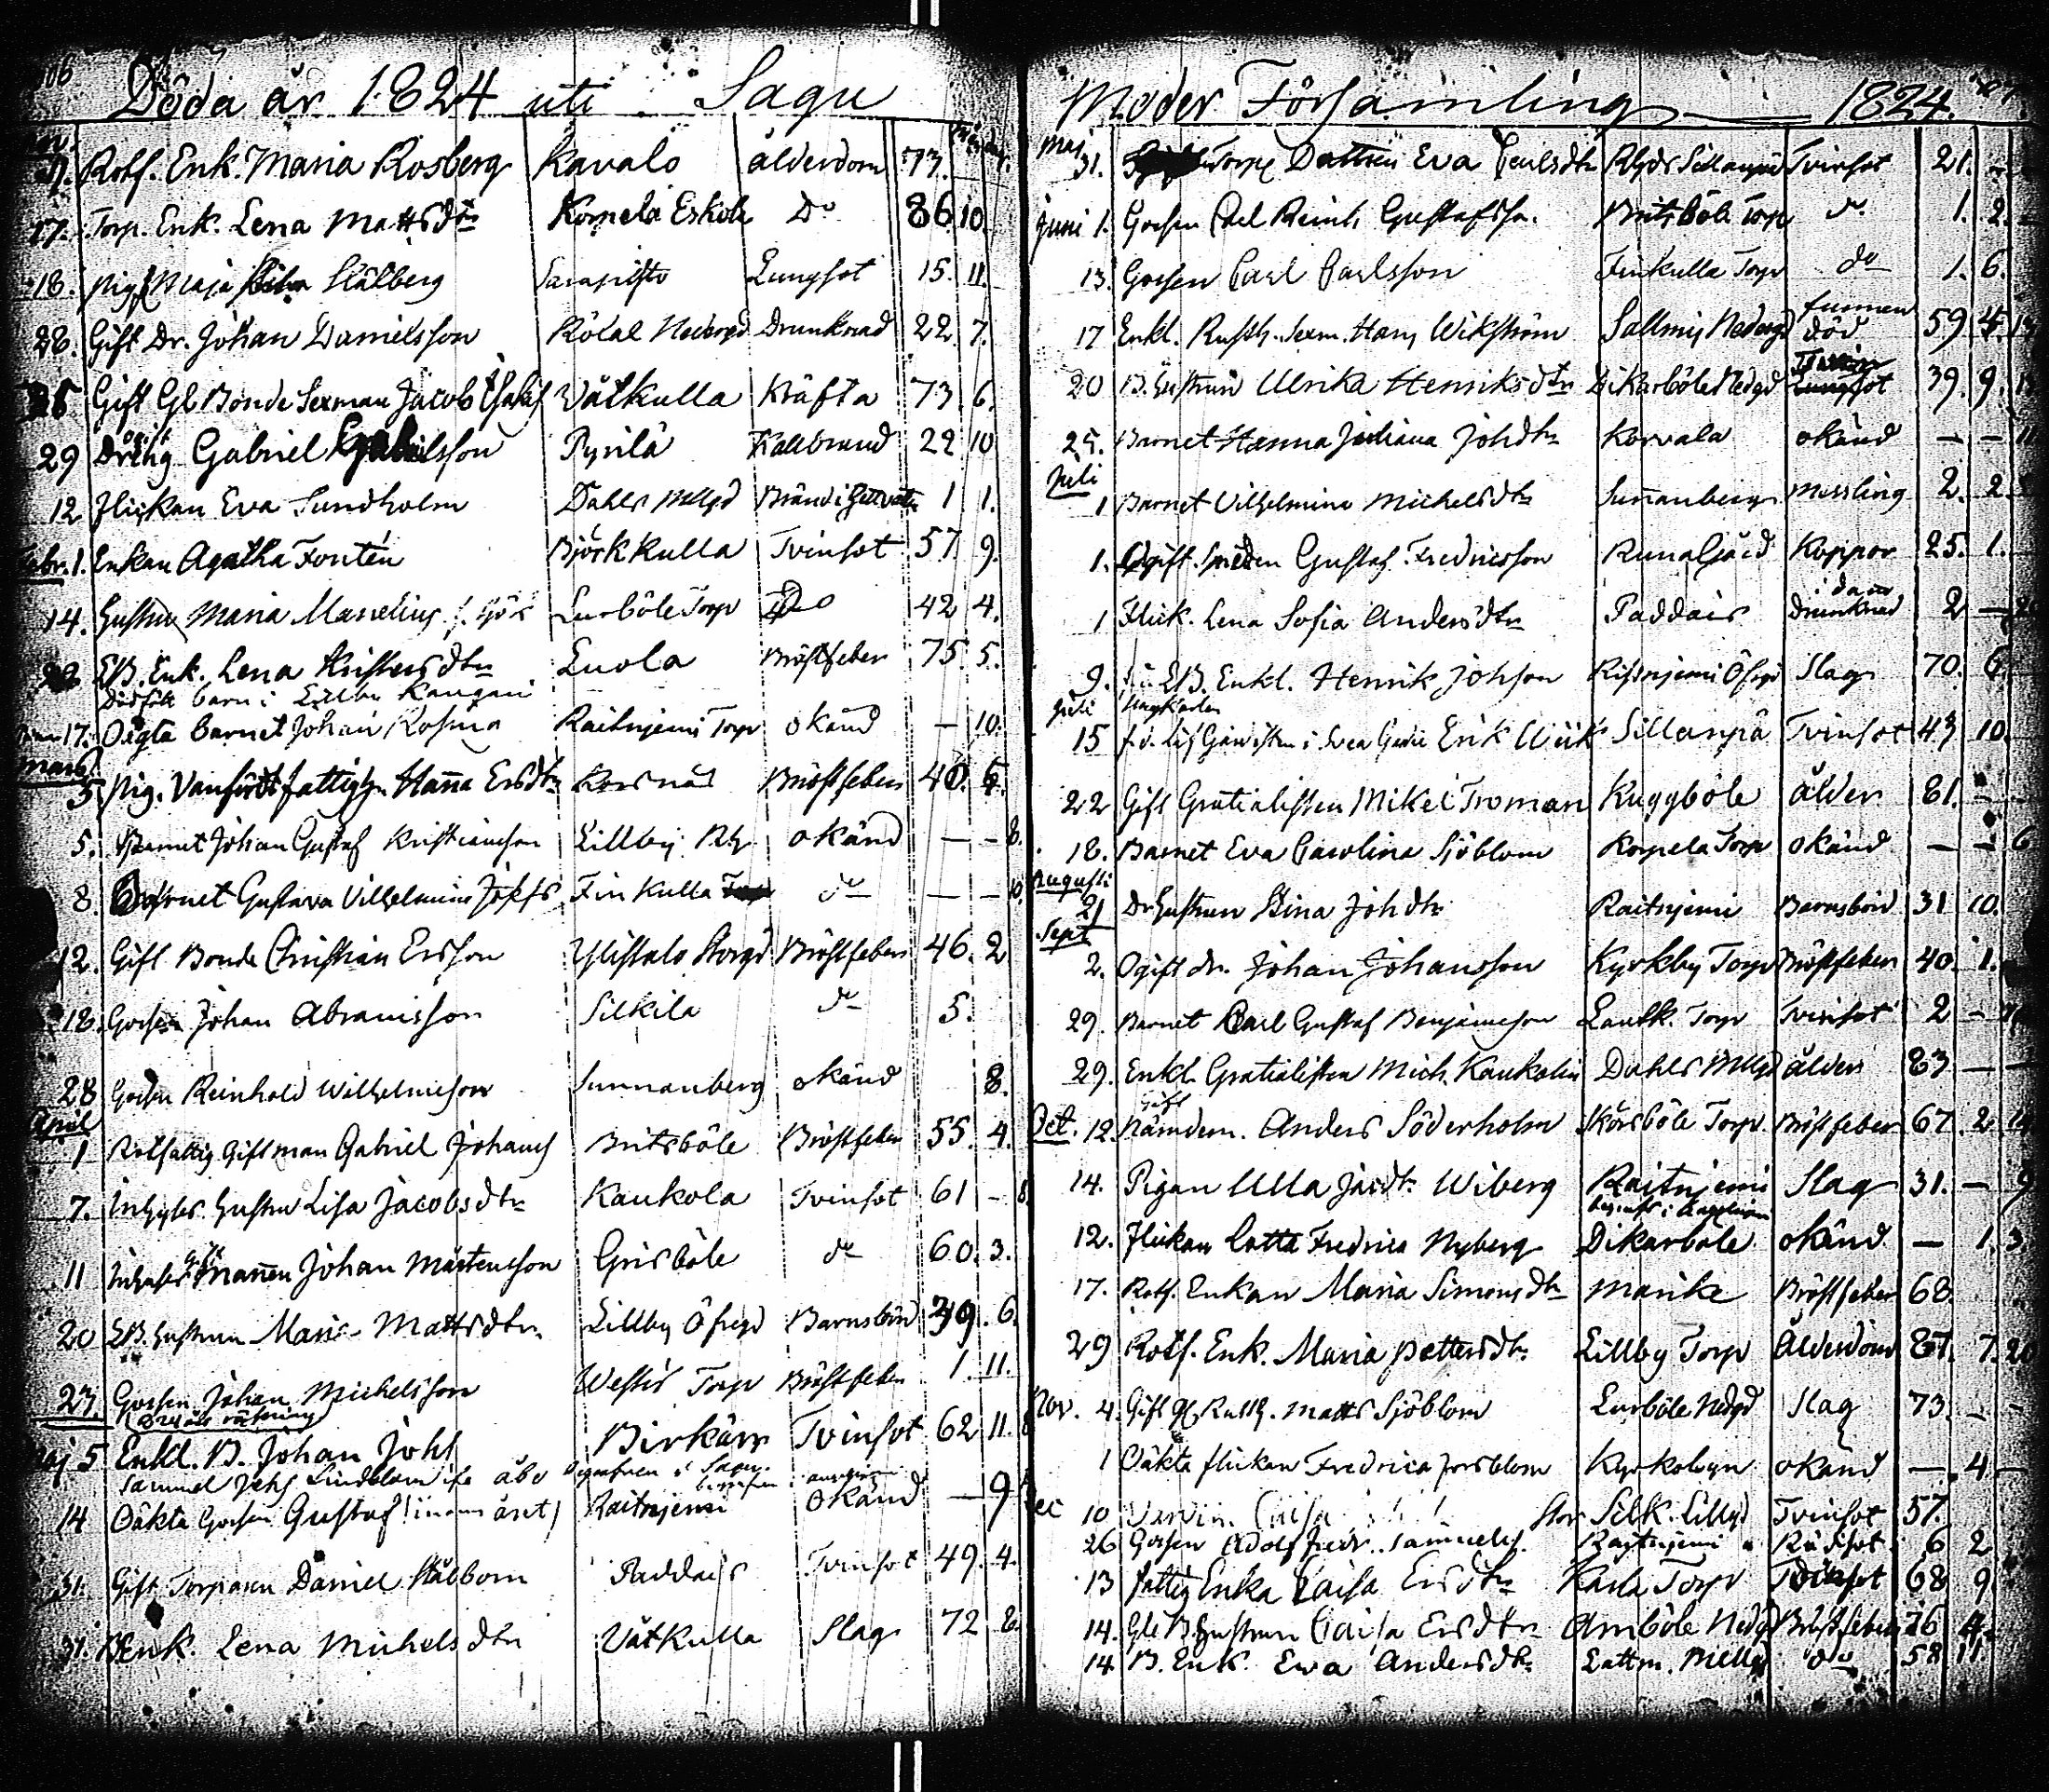 106
Döda år 1824 uti Sagu
Rotf. Enk. Maria Rosberg Kavalo ålderdom 73.
17. Torp. Enk. Lena Mattsdtr Korpela Eskola Do 86. 10.
18. Pig. Maja Stina Stålberg Sarapisto Lungsot 15. 11.
28. Gift Dr. Johan Danielsson Kölal Nedergd Drunknad 22. 7.
Gift Gl. Bonde Sexman Jacob Vätkulla Kräfta 73. 6.
29 Dräng Gabriel Pynilä Kallbrand 22 10
12 Flickan Eva Sundholm Dahls Mellgd Bränd i hett vatn 1 1.
Febr. 1. Enkan Agatha Fontén Björkkulla Tvinsot 57. 9.
14. Hustru Maria Masselius Lurböle Torp Do 42 4.
22 EB. Enk. Lena Kristersdtr Luola Bröstfeber 75. 5.
17. Oägta barnet Johan Raitnjemi Torp okänd — 10.
Mars
5. Pig. Vanfört fattighj. Hanna Ersdtr Korsnäs Bröstfeber 40. 5.
5. Barnet Johan Gustaf Kristiansson Lillby okänd — - 8.
8. Barnet Gustava Vilhelmina Finkulla do — - 10
12. Gift Bonde Christian Ersson Ylistalo Storgd Bröstfeber 46. 2
18. Gossen Johan Abramsson Silkila do 5.
28 Gossen Reinhold Wilhelmsson Sunnanberg okänd 8.
April
1 Rotfattig Gift man Gabriel Johans Britsböle Bröstfeber 55. 4.
7. Inhyses Hustru Lisa Jacobsdtr Kaukola Tvinsot 61 - 8
11 Inhyses Mannen Johan Mårtensson Grisböle do 60. 3.
20 EB. Hustrun Maria Mattsdtr Lillby Öfregd Barnsbörd 39. 6.
23. Gossen Johan Michelsson Westis Torp Bröstfeber 1. 11.
Maj 5 Enkl. B. Johan Johs Birkärr Tvinsot 62 11. 8
Samuel Johs Lindblom Åbo begrafven i Sagu
14 Oäkta Gossen Gustaf (inom året) Raitnjemi okänd — 9
31. Gift Torparen Daniel Stålbom Paddais Tvinsot 49. 4.
31. Enk. Lena Michelsdtr Vätkulla Slag 72 8.
Moder Församling 1824.
Maj
31. Torp. Dottren Eva Carlsdtr Tvinsot 21. -
Juni 1. Gossen Carl Reinh. Gustafsson Britsböle Torp do 1. 2.
13. Gossen Carl Carlsson Finkulla Torp do 1. 6.
17 Enkl. Rusth. Sexm. Hans Wikström Sallmis Nedergd funnen död 59
20 B. Hustrun Ulrika Henriksdtr Dikarböle Nedgd 39. 9.
25. Barnet Hanna Juliana Johdtr Korvala okänd — — 11
Juli
1 Barnet Vilhelmina Michelsdtr Sunnanberg Messling 2. 2.
1. Ogift Smeden Gustaf Fredricsson Runagård Koppor 25. 1.
1 Flick. Lena Sofia Andersdtr Paddais Drunknad 2 —
9. EB. Enkl. Henrik Johsson Ristnjemi Öfrgd Slag 70. 6.
Juli Ungkarlen
15 f.d. Lif Gardisten i Svea Garde Erik Wiik Sillanpä Tvinsot 43 10.
22 Gift Gratialisten Mikel Troman Kuggböle ålder 81. -
18. Barnet Eva Carolina Sjöblom Korpela Torp okänd — - 6
Augusti
21 Dr. Hustrun Stina Johdtr Raitnjemi Barnsbörd 31 10.
Sept
2. Ogift dr. Johan Johansson Kyrkby Torp Bröstfeber 40. 1.
29. Barnet Carl Gustaf Benjamsson Lautk. Torp Tvinsot 2 —
29. Enkl. Gratialisten Mich. Kaukolin Dahls Mellgd ålder 83 — —
Gift
Oct. 12. Nämdem. Anders Söderholm Skörsböle Torp. Bröstfeber 67. 2 14
14. Pigan Ulla Jacdtr Wiberg Raitnjemi Slag 31. — 9
12. Flickan Lotta Fredrica Nyberg Dikarböle okänd — 1. 3
17. Rotf. Enkan Maria Simonsdtr Marike Bröstfeber 68.
29 Rotf. Enk. Maria Pettersdtr Lillby Torp Ålderdom 87. 7. 20
Nov. 4. Gift Gl. Rusth. Matts Sjöblom Lurböle Nedgd Slag 73. - -
1 Oäkta flickan Fredrica Forsblom Kyrkobyn okänd — 4 —
10 Caisa Silk. Lillgd Tvinsot 57.
26 Gossen Adolf Fredr. Samuels. Raitnjemi Rödsot 6 2
13 Fattig Enka Caisa Ersdtr Karla Torp Tvinsot 68 9.
14. Gl. B. Hustrun Caisa Ersdtr Amböle Nedgd Bröstfeber 76 4.
14 B. Enk. Ewa Andersdtr Lattm. Mellgd do 58 11